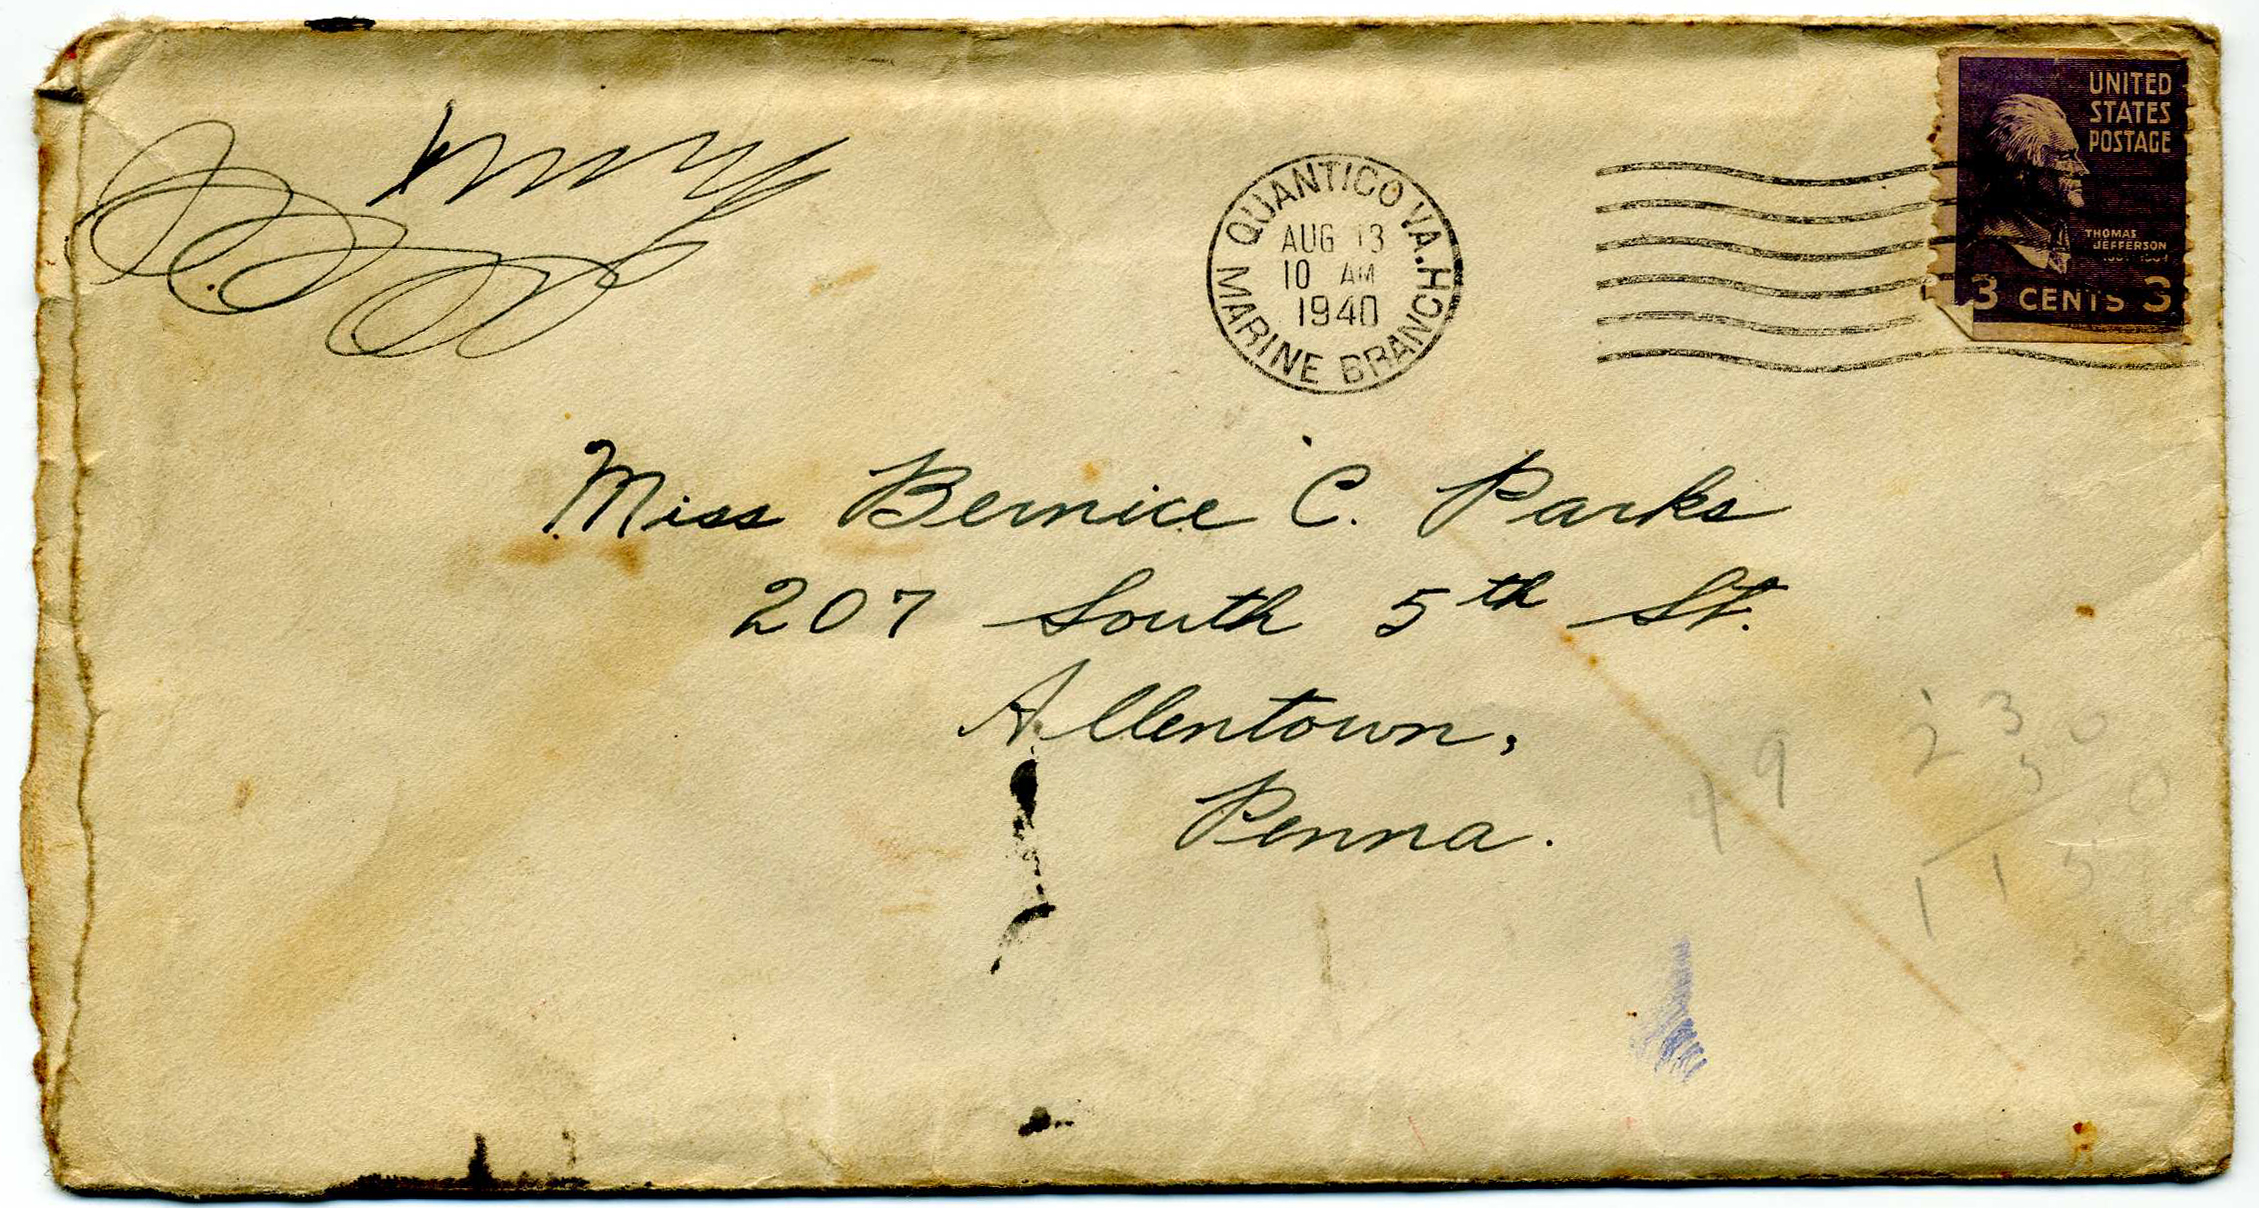 QUANTICO VA.
AUG 13
10 AM
1940
MARINE BRANCH
UNITED
STATES
POSTAGE
THOMAS
JEFFERSON
3 CENTS 3
Miss Bernice C. Parks
207 South 5th St.
Allentown,
Penna.
99